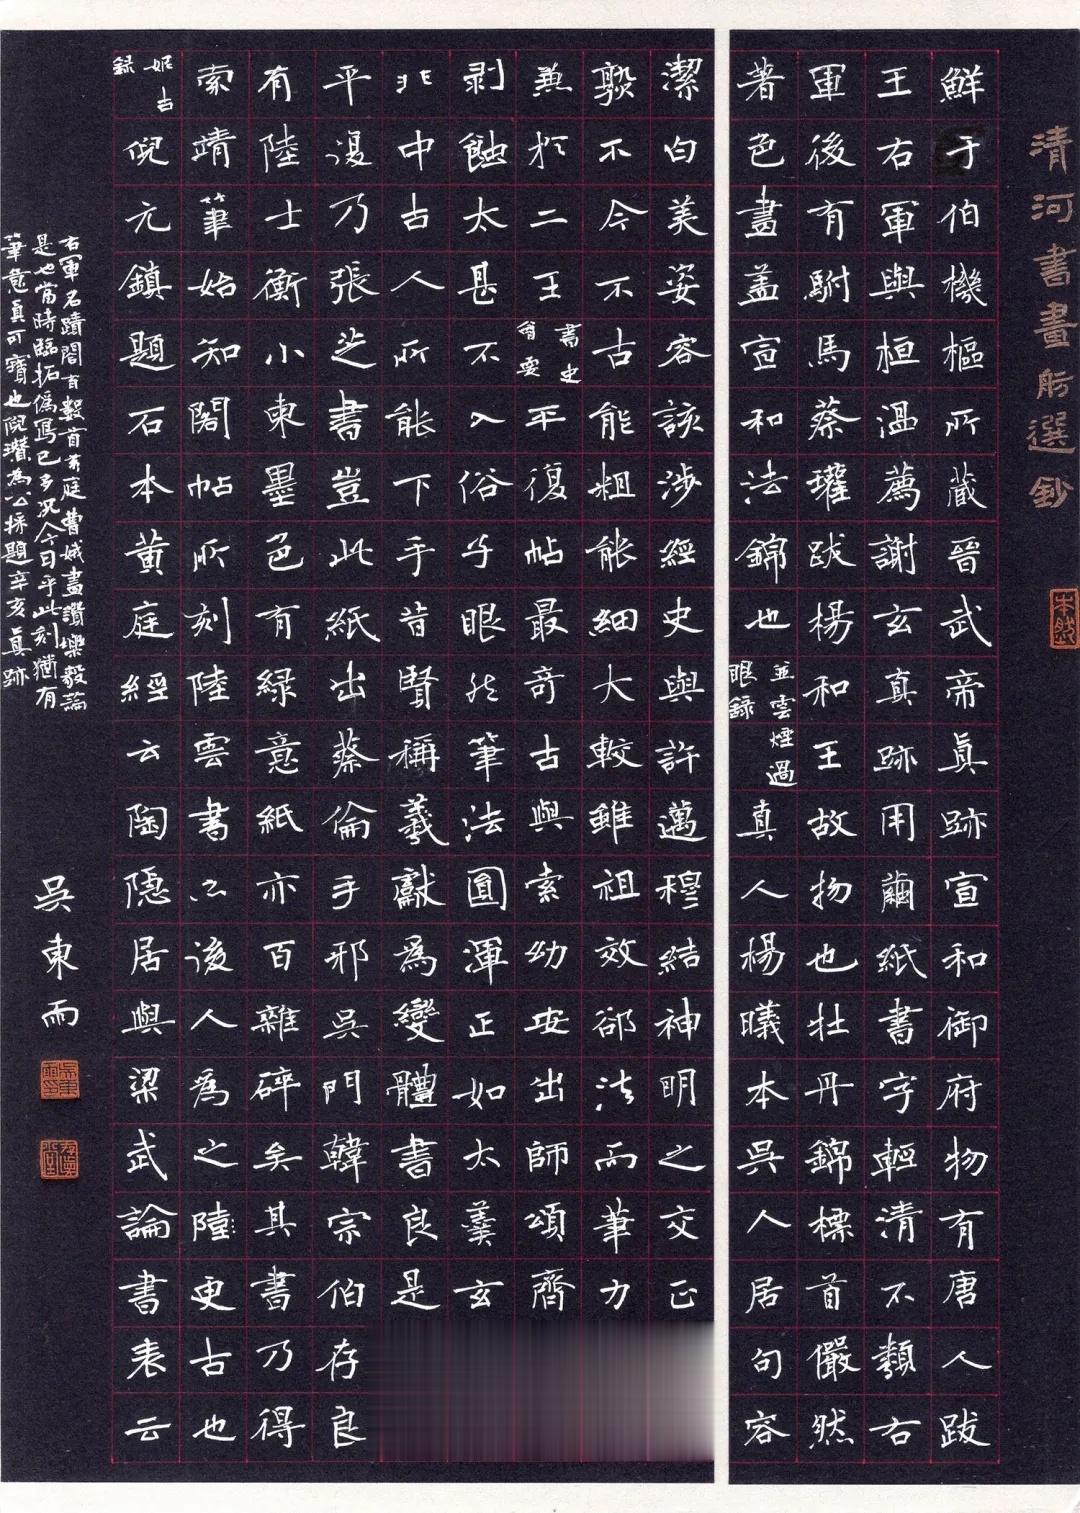 清河書畫舫選鈔
鮮于伯機樞所藏晉武帝真跡宣和御府物有唐人跋
王右軍與桓溫薦謝玄真跡用繭紙書字輕清不類右
軍後有駙馬蔡瓘跋楊和王故物也牡丹錦標首儼然
著色畫盖宣和法錦也
並雲煙過
眼錄
真人楊曦本吳人居句容
潔白美姿容該涉經史與許邁穆結神明之交正
隸不今不古能粗能細大較雖祖效郗法而筆力
無於二王
書史
會要
平復帖最奇古與索幼安出師頌齊
剥蝕太甚不入俗子眼然筆法圓渾正如太羹玄
非中古人所能下手昔賢稱羲獻為變體書良是
平復乃張芝書豈此紙出蔡倫手邪吳門韓宗伯存良
有陸士衡小東墨色有綠意紙亦百雜碎矣其書乃得
索靖筆始知閣帖所刻陸雲書亦後人為之陸更古也
妮古
錄
倪元鎮題石本黄庭經云陶隱居與梁武論書表云
右軍名蹟閤首數首黃庭曹娥畫讚樂毅論
是也當時臨拓偽寫已多況今日乎此刻猶有
筆意真可寶也倪瓚為公採題辛亥真跡
吳東雨